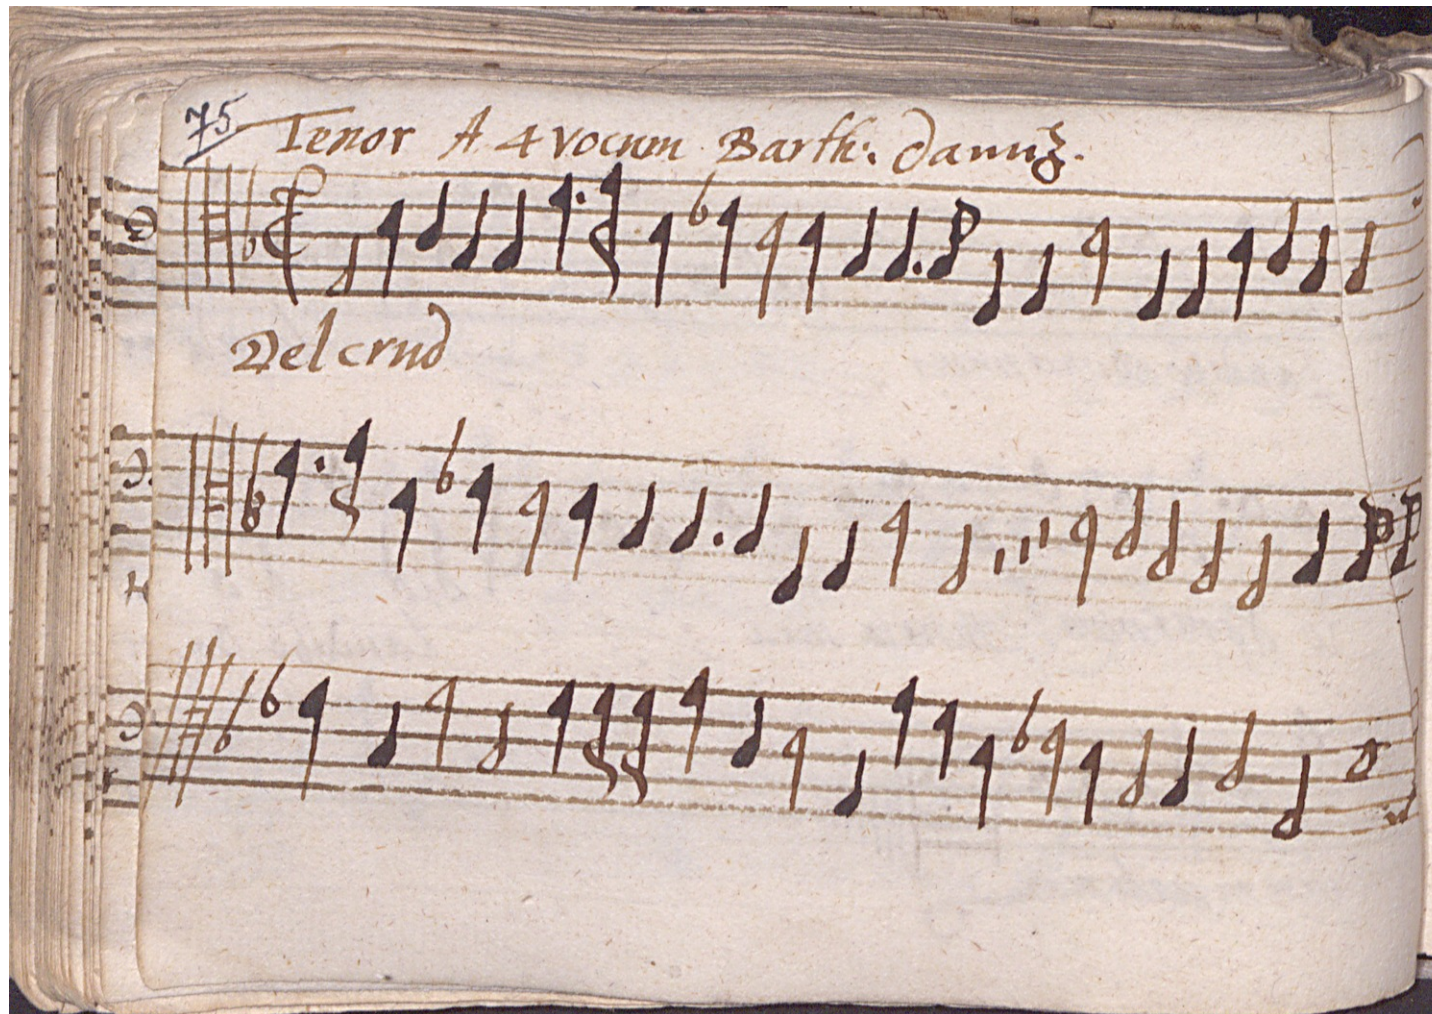 75 Tenor A 4 vocum Barth: Damitz.
Del crud